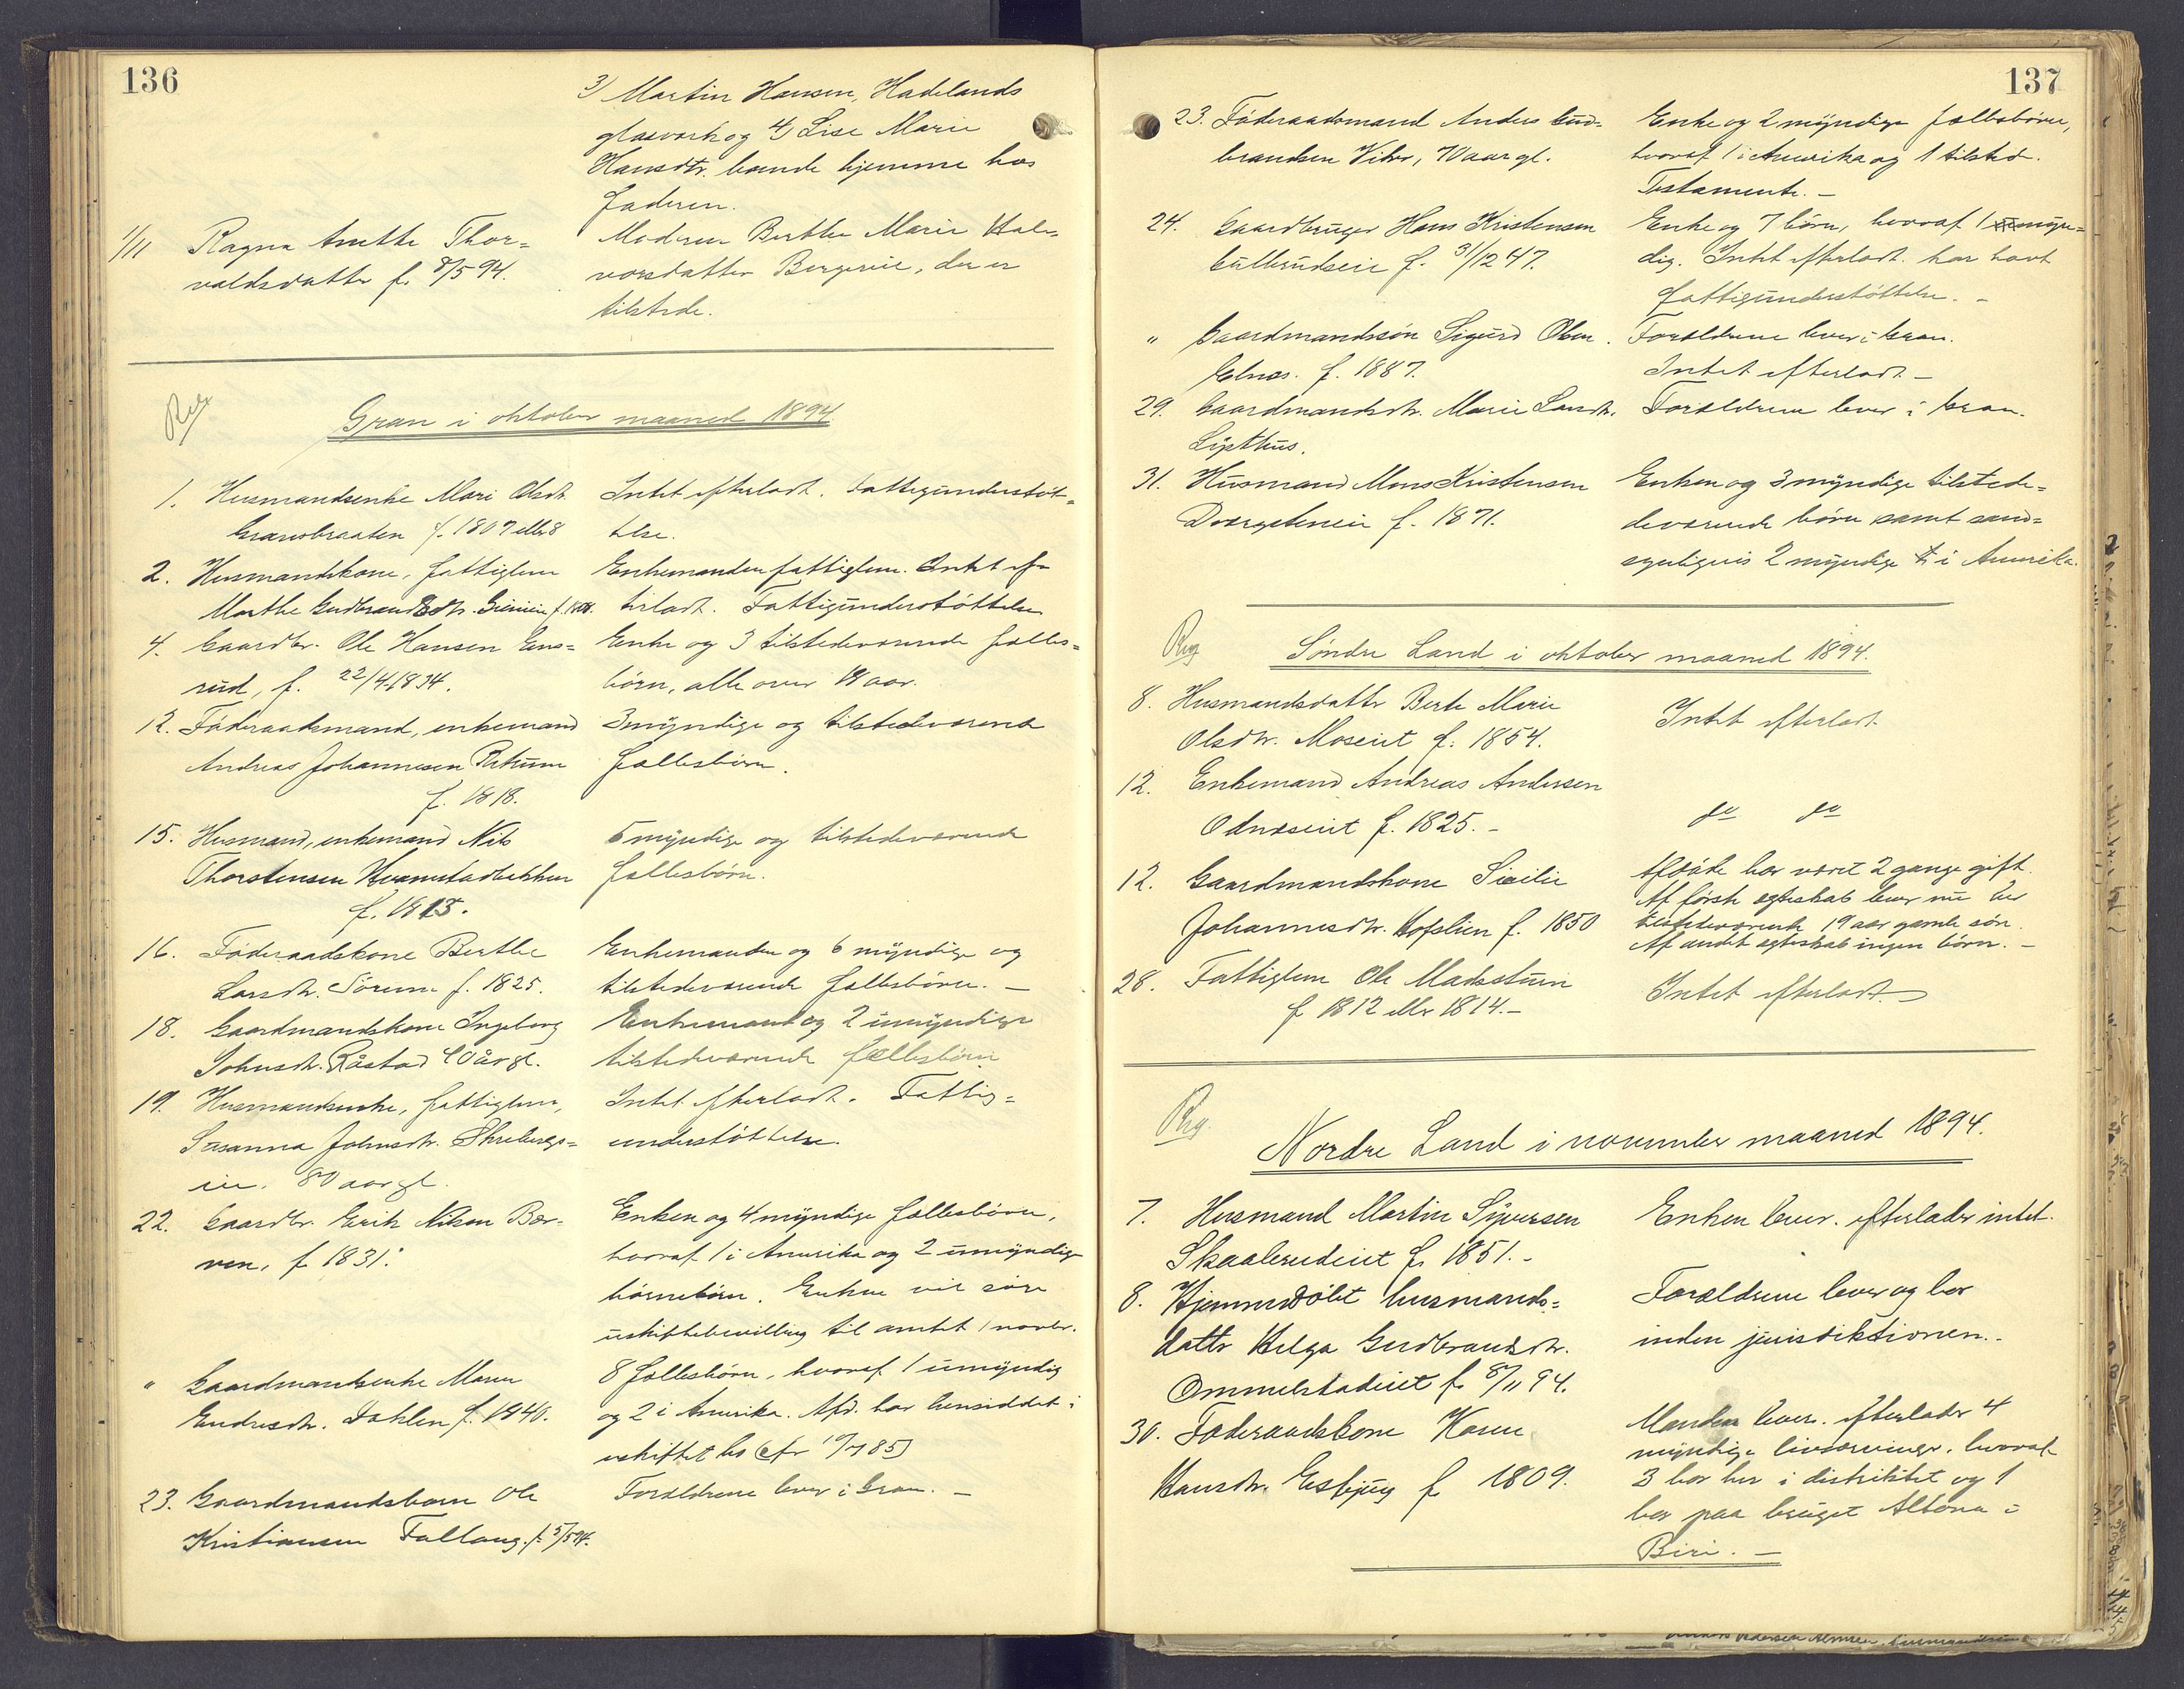 136
3) Martin Hansen, Hadelands
glasværk og 4) Lise Marie
Hansdtr. begge hjemme hos
faderen.
1/11 Ragna Anette Thor-
valdsdatter f. 8/5 94.
Moderen Berthe Marie Hal-
vorsdatter Bergereie, der er
tilstede.
Reg
Gran i oktober maaned 1894
1. Husmandsenke Mari Olsdtr.
Granebraaten f. 1807 eller 8
Intet efterladt. Fattigunderstøt=
telse.
2. Husmandskone, fattiglem
Marthe Gudbrandsdtr.
Enkemanden fattiglem. Intet ef-
terladt. Fattigunderstøttelse
4. Gaardbr. Ole Hansen Ens=
rud, f. 22/4 1834.
Enke og 3 tilstedeværende fælles=
børn, alle over 18 aar.
12. Føderaadsmand, enkemand
Andreas Johannesen
f. 1818.
3 myndige og tilstedeværende
fællesbørn.
15. Husmand, enkemand Nils
Thorstensen Hvamstadbakken
f. 1815.
5 myndige og tilstedeværende
fællesbørn.
16. Føderaadskone Berthe
Larsdtr. Sørum f. 1825.
Enkemanden og 6 myndige og
tilstedeværende fællesbørn. –
18. Gaardmandskone Ingeborg
Johnsdtr. Råstad 40 år gl.
Enkemand og 2 umyndige
tilstedeværende fællesbørn
19. Husmandsenke, fattiglem,
Susanna Johnsdtr. Skrebergs=
eie. 80 aar gl.
Intet efterladt. Fattig=
understøttelse.
22. Gaardbr. Erik Nilsen Bær-
ven, f. 1831.
Enken og 4 myndige fællesbørn,
hvoraf 1 i Amerika og 2 umyndige
børnebørn. Enken vil søge
uskiftebevilling til amtet 1 novbr.
" Gaardmandsenke Maren
Endresdtr. Dahlen f. 1840.
8 fællesbørn, hvoraf 1 umyndig
og 2 i Amerika. Afd. har hensiddet i
uskiftet bo (cfr 10/7 85)
23. Gaardmandsbarn Ole
Kristiansen Fallang. f. 5/5 94.
Forældrene lever i Gran. –
137
23. Føderaadsmand Anders Gud-
brandsen Viker, 70 aar gl.
Enke og 2 myndige fællesbørn,
hvoraf 1 i Amerika og 1 tilstede.
Testamente. –
24. Gaardbruger Hans Kristensen
Gullerudseie f. 31/12 47.
Enke og 7 børn, hvoraf 1 myn=
dig. Intet efterladt. har havt
fattigunderstøttelse. –
" Gaardmandssøn Sigurd Olsen
Elnæs. f. 1887.
Forældrene lever i Gran.
Intet efterladt –
29. Gaardmandsdtr. Marie Larsdtr.
Lysthus.
Forældrene lever i Gran.
31. Husmand Mons Kristensen
Dvergsteneie f. 1871.
Enken og 3 myndige tilstede=
deværende børn samt sand=
synligvis 2 myndige i Amerika.
Reg
Søndre Land i oktober maaned 1894.
8. Husmandsdatter Berte Marie
Olsdtr. Moseiet f. 1854.
Intet efterladt
12. Enkemand Andreas Andersen
Odnæseiet f. 1825. –
do do
12. Gaardmandskone Sicilie
Johannesdtr. Hofslien f. 1850
Afdøde har været 2 gange gift.
Af første egteskab lever nu her
tilstedeværende 19 aar gamle søn.
Af andet egteskab ingen børn. –
28. Fattiglem Ole Madsstuen
f 1812 eller 1814. –
Intet efterladt
Reg.
Nordre Land i november maaned 1894.
7. Husmand Martin Syversen
Skaalerudeiet f. 1851. –
Enken lever. efterlader intet.
8. Hjemmedøbt husmands=
datter Helga Gudbrandsdtr.
Ommelstadeiet f. 8/11 94.
Forældrene lever og bor
inden jurisdiktionen. –
30. Føderaadskone Karen
Hansdtr. Esbjug f 1809.
Manden lever. efterlader 4
myndige livsarvinger. hvoraf
3 bor her i distriktet og 1
bor paa bruget Altona i
Biri. –